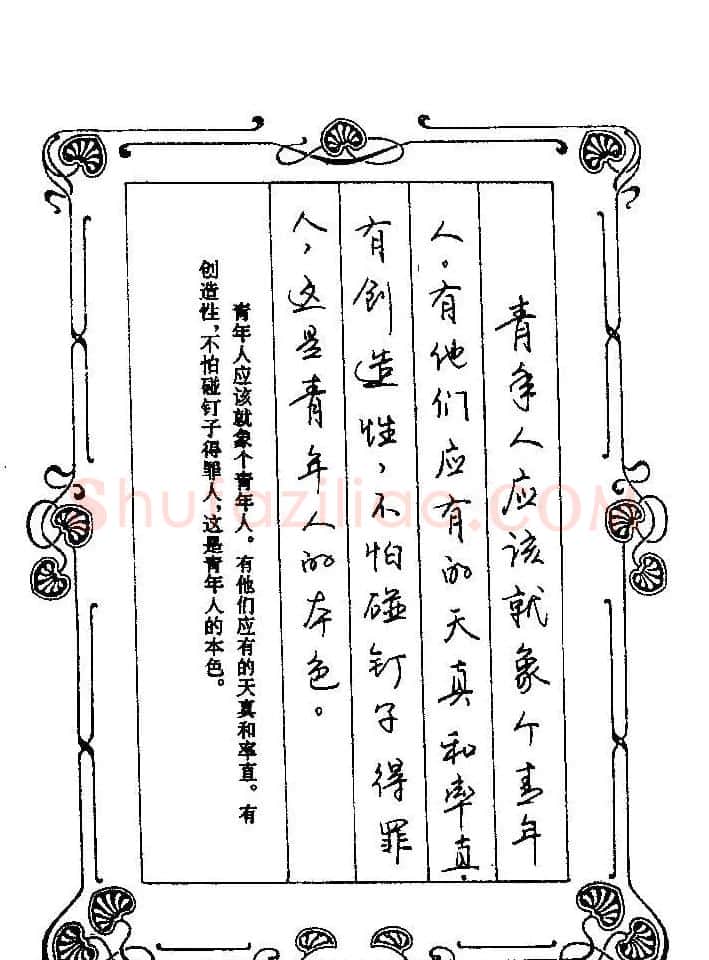 青年人应该就象个青年
人。有他们应有的天真和率直.
有创造性,不怕碰钉子得罪
人,这是青年人的本色。
青年人应该就象个青年人。有他们应有的天真和率直。有
创造性,不怕碰钉子得罪人,这是青年人的本色。
Shufaziliao.COM